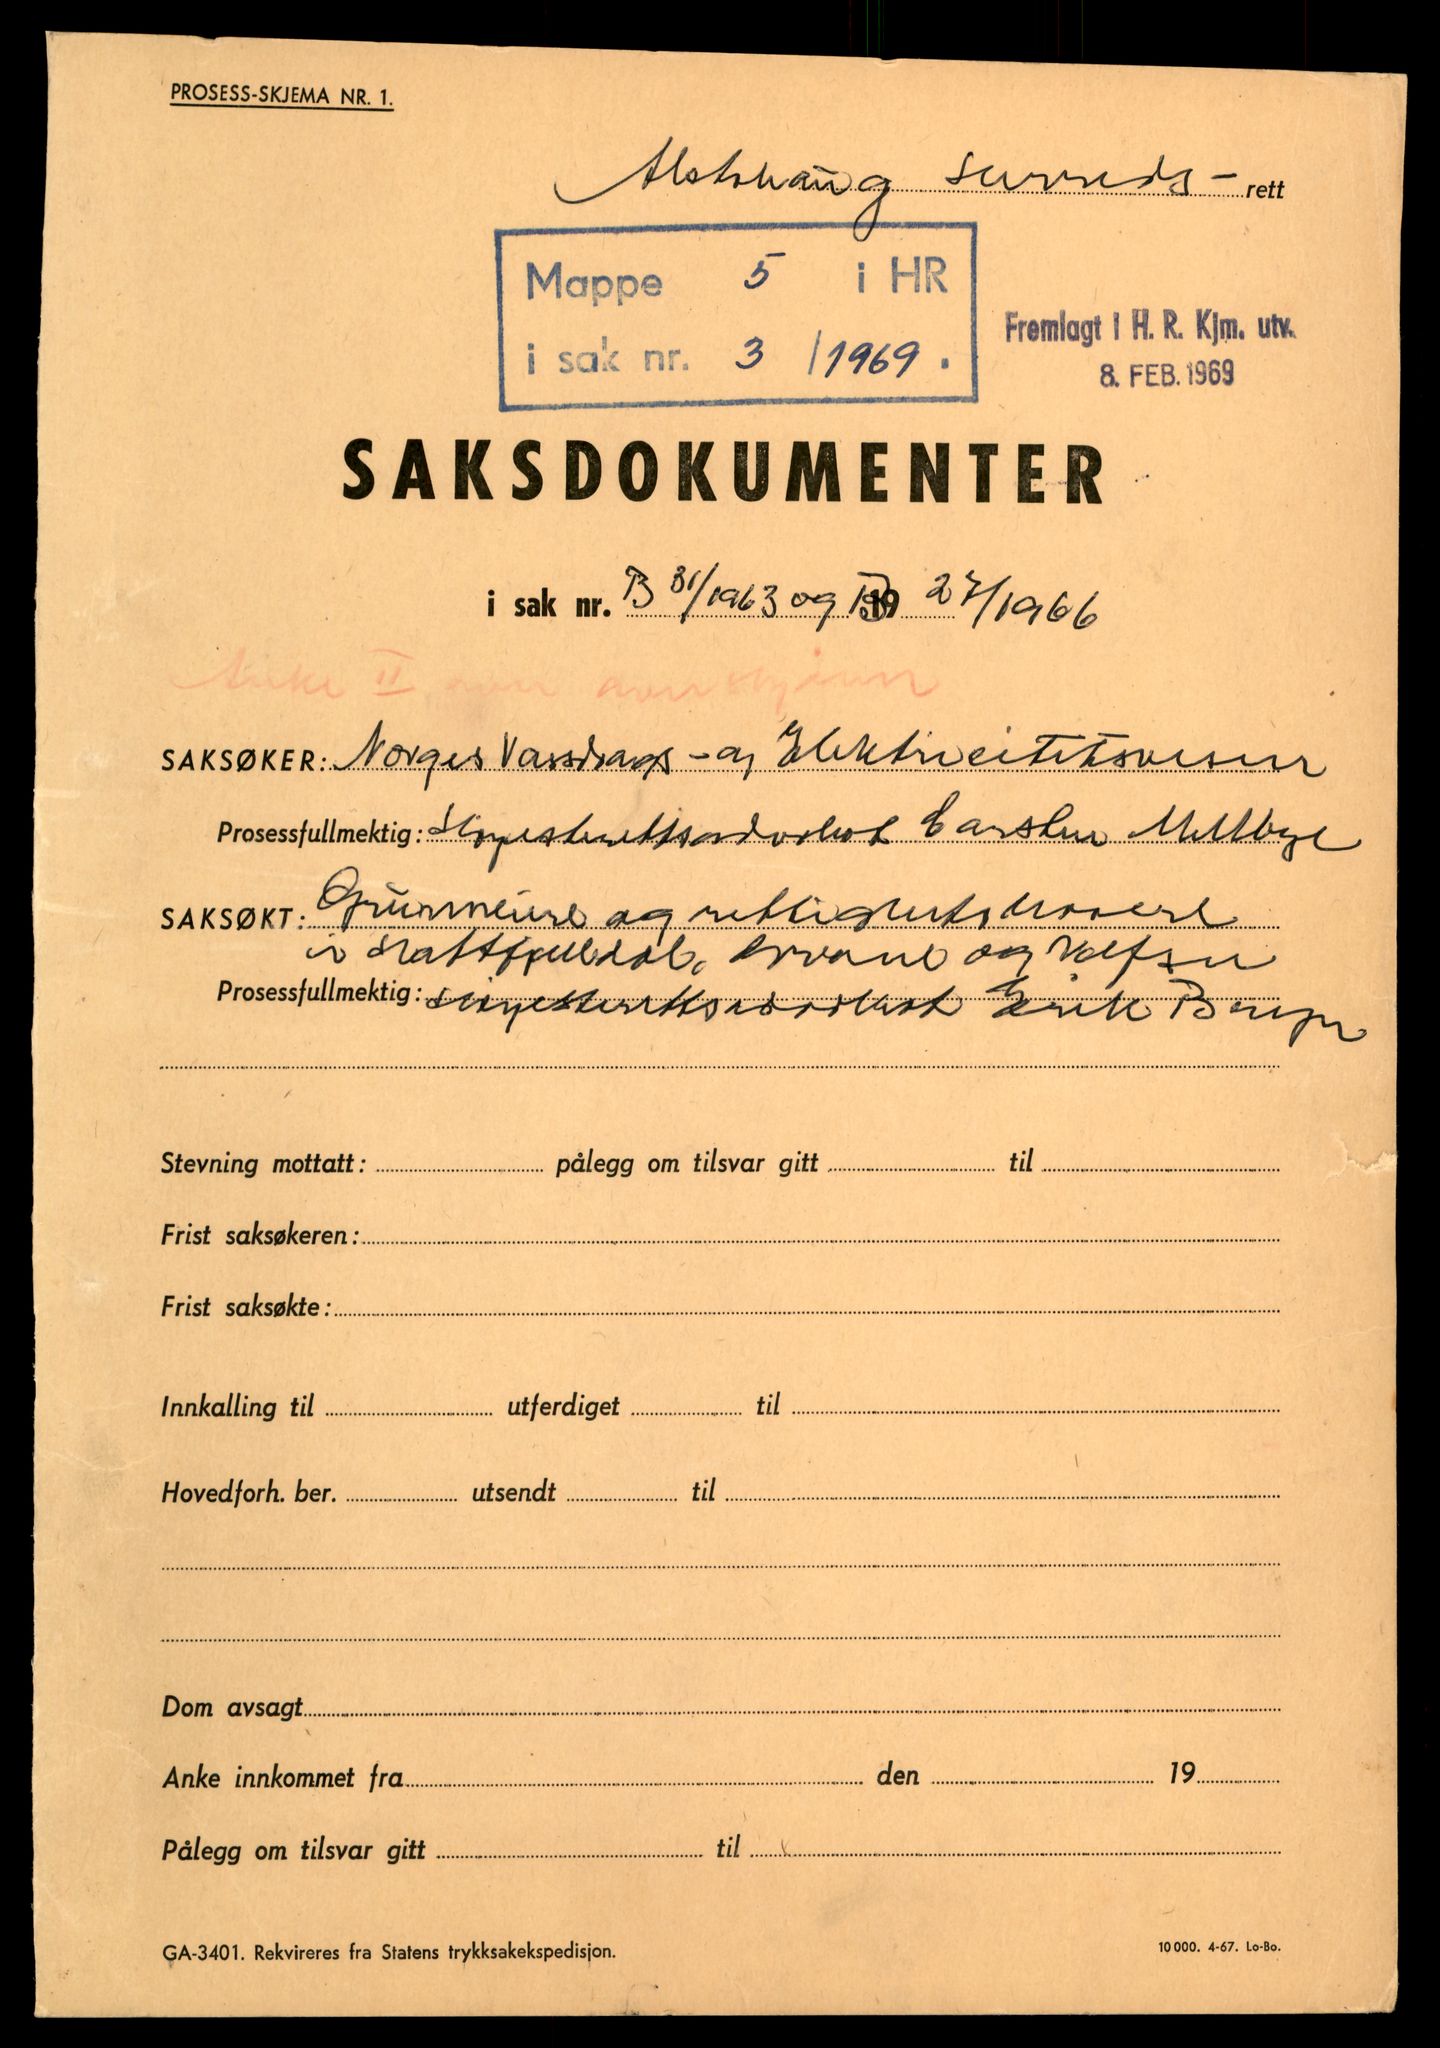 PROSESS-SKJEMA NR. 1.
Alstahaug herreds-rett
Mappe 5 i HR
i sak nr. 3 /1969.
Fremlagt i H. R. Kjm. utv.
8. FEB. 1969
SAKSDOKUMENTER
i sak nr. B 31/1963 og B 19 27/1966
Anke II over overskjønn
SAKSØKER: Norges Vassdrags- og Elektricitetsvesen
Prosessfullmektig: Høyesterettsadvokat Carsten Mellbye
SAKSØKT: Grunneiere og rettighetshavere
i Hattfjelldal, Grane og Vefsn
Prosessfullmektig: Høyesterettsadvokat Erik
Stevning mottatt: pålegg om tilsvar gitt til
Frist saksøkeren:
Frist saksøkte:
Innkalling til utferdiget til
Hovedforh. ber. utsendt til
Dom avsagt
Anke innkommet fra den 19
Pålegg om tilsvar gitt til
GA-3401. Rekvireres fra Statens trykksakekspedisjon.
10 000. 4-67. Lo-Bo.